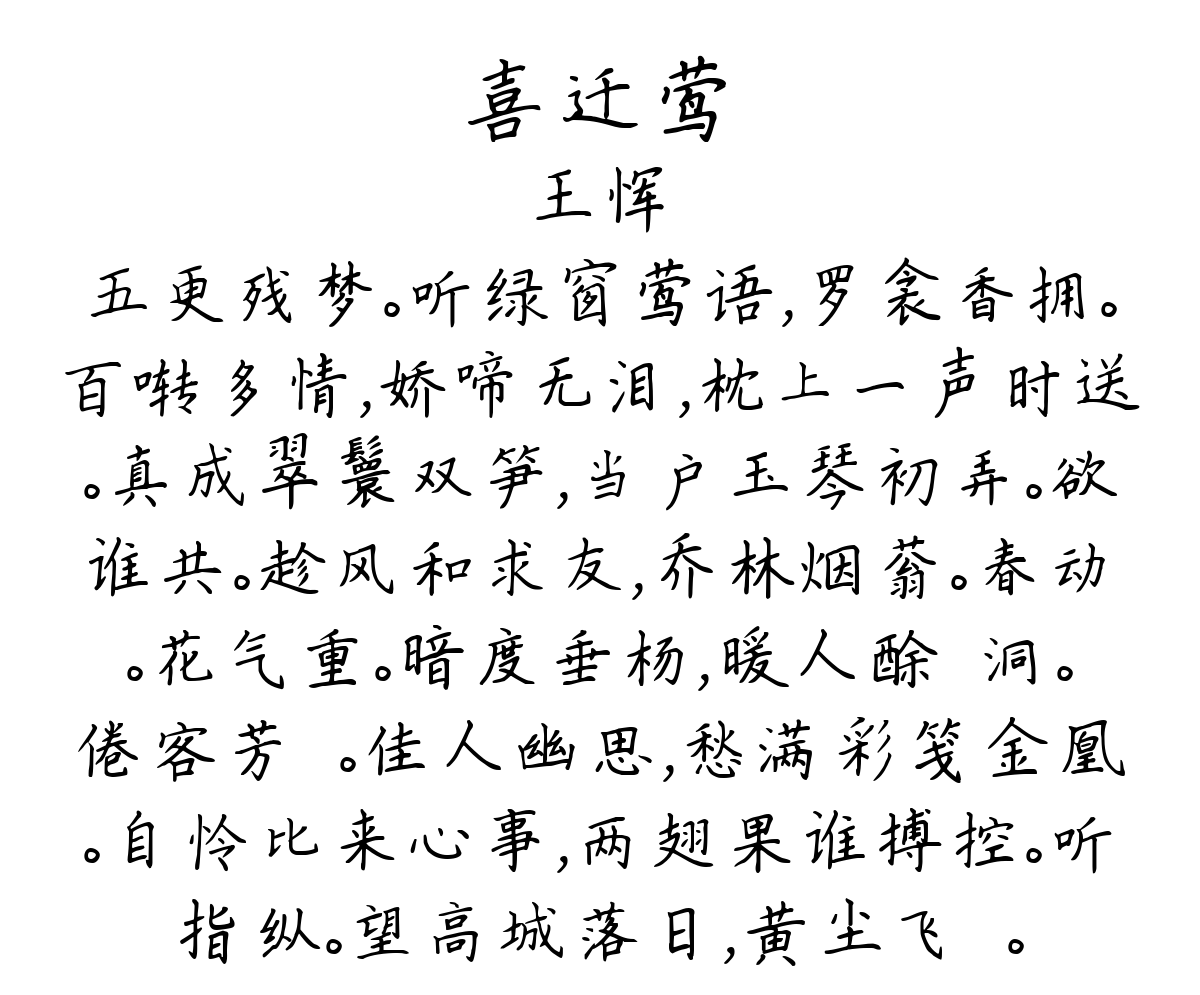 喜迁莺
王恽
五更残梦。听绿窗莺语,罗衾香拥。
百啭多情,娇啼无泪,枕上一声时送
。真成翠鬟双笋,当户玉琴初弄。欲
谁共。趁风和求友,乔林烟蓊。春动
。花气重。暗度垂杨,暖人酴 洞。
倦客芳 。佳人幽思,愁满彩笺金凰
。自怜比来心事,两翅果谁搏控。听
指纵。望高城落日,黄尘飞 。